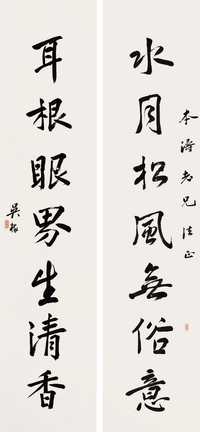 水月松風無俗意
本濤老兄法正
耳根眼界生清香